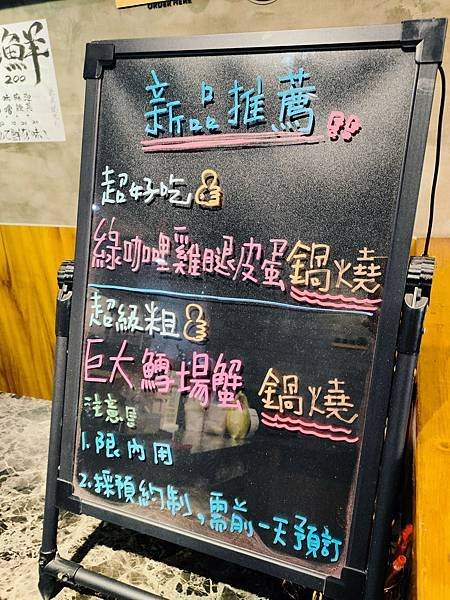 ORDER HERE
鮮
200
新品推薦!!
超好吃
綠咖哩雞腿皮蛋鍋燒
超級粗
巨大鱈場蟹 鍋燒
注意:
1.限內用
2.採預約制,需前一天預訂